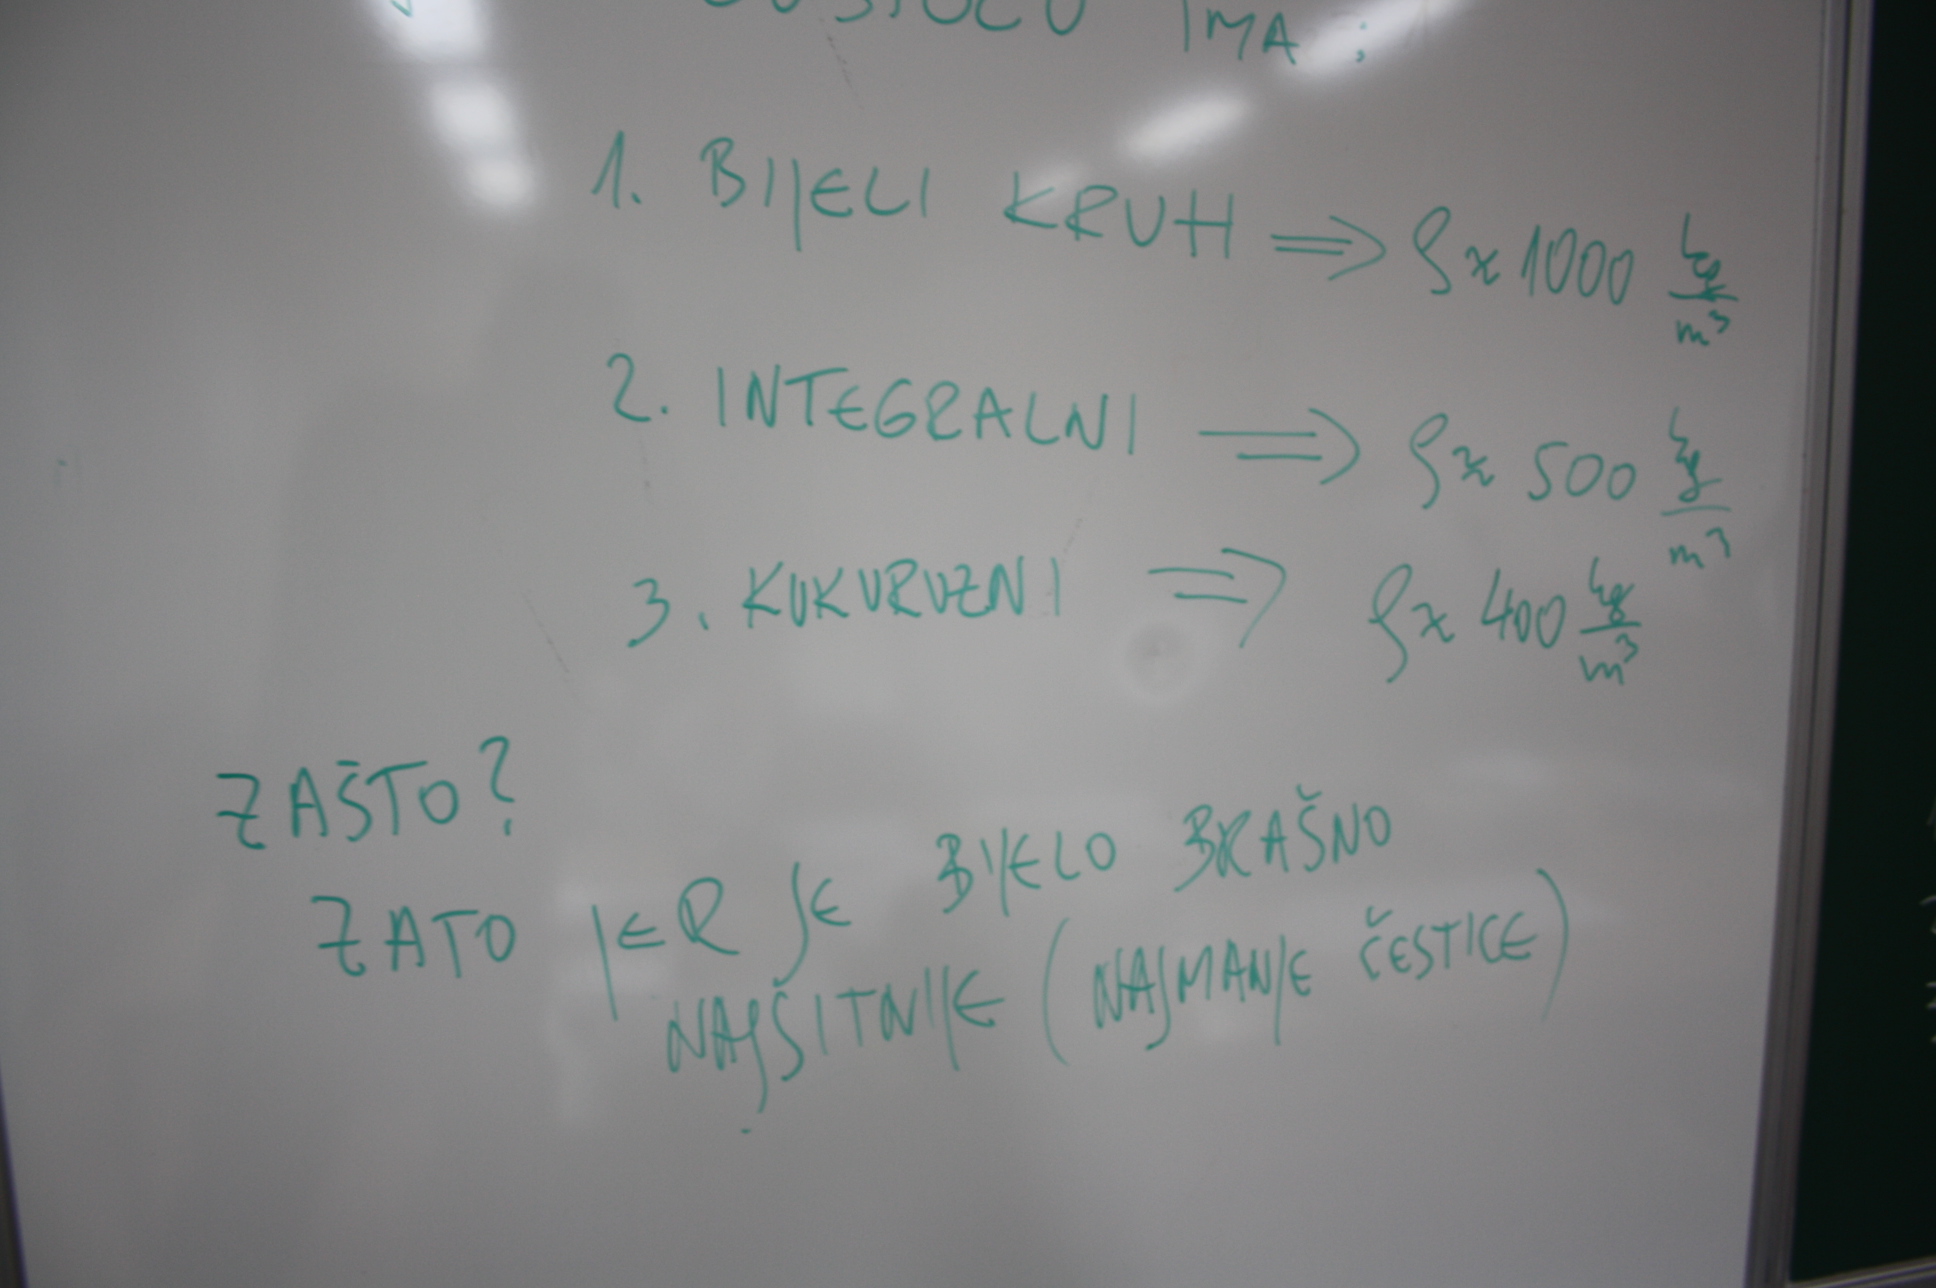 IMA:
1. BIJELI KRUH ⇒ ρ ≈ 1000 kg/m³
2. INTEGRALNI ⇒ ρ ≈ 500 kg/m³
3. KUKURUZNI ⇒ ρ ≈ 400 kg/m³
ZAŠTO?
ZATO JER JE BIJELO BRAŠNO
NAJSITNIJE (NAJMANJE ČESTICE)